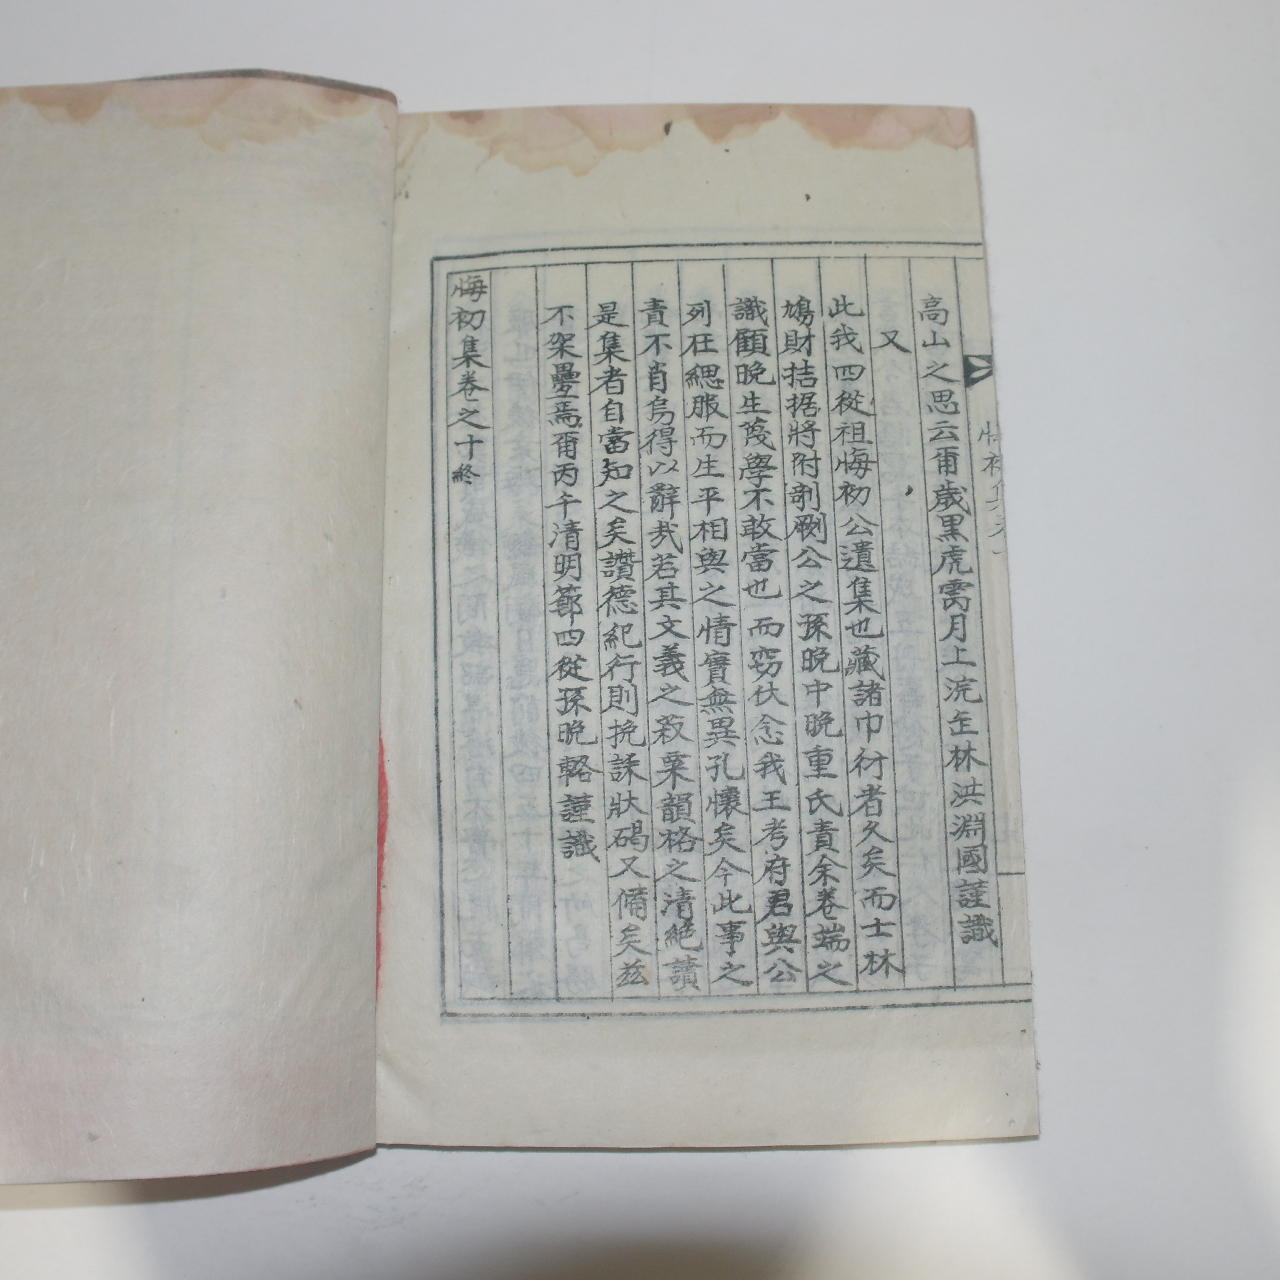 高山之思云爾歲黑虎雩月上浣玄林洪淵國謹識
又
此我四從祖悔初公遺集也藏諸巾衍者久矣而士林
鳩財拮据將附剞劂公之孫晩中晩重氏責余卷端之
識顧晩生蔑學不敢當也而竊伏念我王考府君與公
列在緦服而生平相與之情實無異孔懷矣今此事之
責不肖烏得以辭㢤若其文義之菽粟韻格之清絶讀
是集者自當知之矣讚德紀行則挽誄狀碣又備矣玆
不架疊焉爾丙午清明節四從孫晩輅謹識
悔初集卷之十終